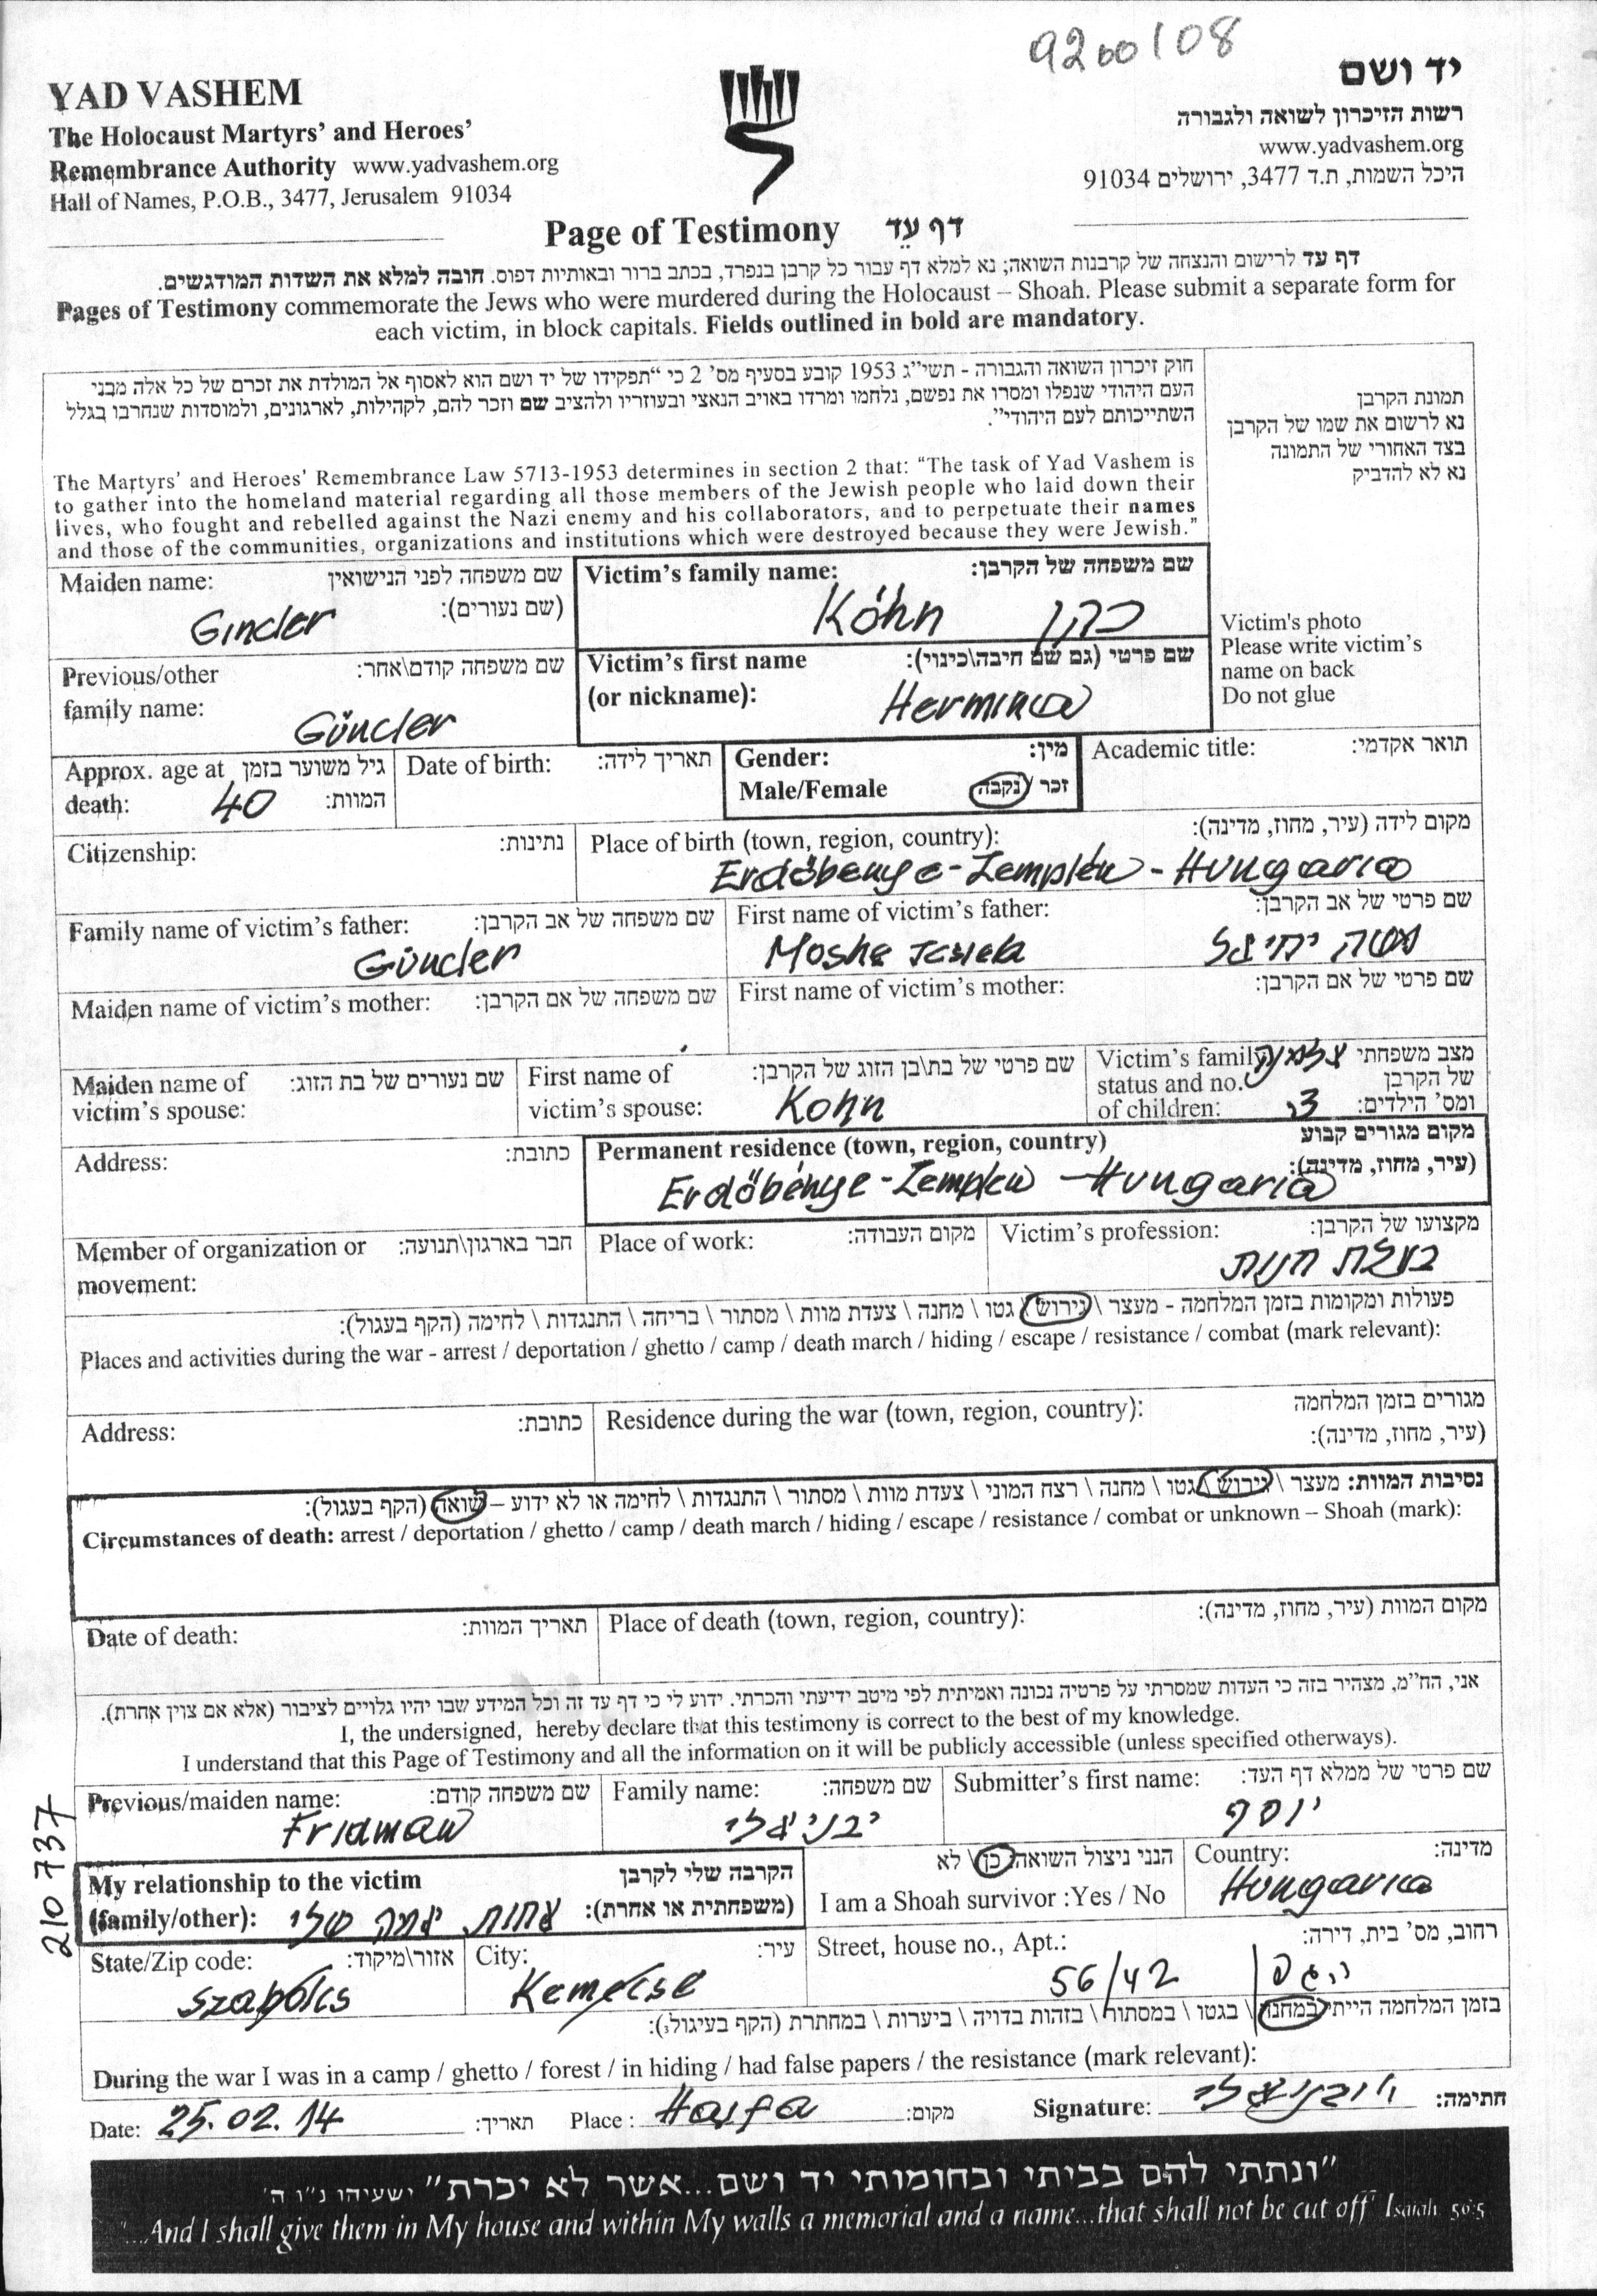 9200108
YAD VASHEM
The Holocaust Martyrs' and Heroes'
Remembrance Authority www.yadvashem.org
Hall of Names, P.O.B., 3477, Jerusalem 91034
יד ושם
רשות הזיכרון לשואה ולגבורה
www.yadvashem.org
היכל השמות, ת.ד 3477, ירושלים 91034
Page of Testimony דף עֵד
דף עד לרישום והנצחה של קרבנות השואה; נא למלא דף עבור כל קרבן בנפרד, בכתב ברור ובאותיות דפוס. חובה למלא את השדות המודגשים.
Pages of Testimony commemorate the Jews who were murdered during the Holocaust – Shoah. Please submit a separate form for
each victim, in block capitals. Fields outlined in bold are mandatory.
חוק זיכרון השואה והגבורה - תשי"ג 1953 קובע בסעיף מס' 2 כי "תפקידו של יד ושם הוא לאסוף אל המולדת את זכרם של כל אלה מבני
העם היהודי שנפלו ומסרו את נפשם, נלחמו ומרדו באויב הנאצי ובעוזריו ולהציב שם וזכר להם, לקהילות, לארגונים, ולמוסדות שנחרבו בגלל
השתייכותם לעם היהודי".
The Martyrs' and Heroes' Remembrance Law 5713-1953 determines in section 2 that: "The task of Yad Vashem is
to gather into the homeland material regarding all those members of the Jewish people who laid down their
lives, who fought and rebelled against the Nazi enemy and his collaborators, and to perpetuate their names
and those of the communities, organizations and institutions which were destroyed because they were Jewish."
תמונת הקרבן
נא לרשום את שמו של הקרבן
בצד האחורי של התמונה
נא לא להדביק
Victim's photo
Please write victim's
name on back
Do not glue
Maiden name: שם משפחה לפני הנישואין
(שם נעורים):
Ginder
Victim's family name: שם משפחה של הקרבן:
Kóhn כהן
Previous/other שם משפחה קודם\אחר:
family name:
Günder
Victim's first name שם פרטי (גם שם חיבה\כינוי):
(or nickname):
Hermina
Approx. age at גיל משוער בזמן
death: 40 המוות:
Date of birth: תאריך לידה:
Gender: מין:
Male/Female זכר / נקבה
Academic title: תואר אקדמי:
Citizenship: נתינות:
Place of birth (town, region, country): מקום לידה (עיר, מחוז, מדינה):
Erdőbénye-Zemplén - Hungaria
Family name of victim's father: שם משפחה של אב הקרבן:
Günder
First name of victim's father: שם פרטי של אב הקרבן:
Moshe משה יחיאל
Maiden name of victim's mother: שם משפחה של אם הקרבן:
First name of victim's mother: שם פרטי של אם הקרבן:
Maiden name of שם נעורים של בת הזוג:
victim's spouse:
First name of שם פרטי של בת\בן הזוג של הקרבן:
victim's spouse: Kohn
Victim's family מצב משפחתי
status and no. של הקרבן
of children: 3 ומס' הילדים:
Address: כתובת:
Permanent residence (town, region, country) מקום מגורים קבוע
(עיר, מחוז, מדינה):
Erdőbénye-Zemplen - Hungaria
Member of organization or חבר בארגון\תנועה:
movement:
Place of work: מקום העבודה:
Victim's profession: מקצועו של הקרבן:
בעלת חנות
פעולות ומקומות בזמן המלחמה - מעצר \ גירוש \ גטו \ מחנה \ צעדת מוות \ מסתור \ בריחה \ התנגדות \ לחימה (הקף בעגול):
Places and activities during the war - arrest / deportation / ghetto / camp / death march / hiding / escape / resistance / combat (mark relevant):
Address: כתובת:
Residence during the war (town, region, country): מגורים בזמן המלחמה
(עיר, מחוז, מדינה):
נסיבות המוות: מעצר \ גירוש \ גטו \ מחנה \ רצח המוני \ צעדת מוות \ מסתור \ התנגדות \ לחימה או לא ידוע – שואה (הקף בעגול):
Circumstances of death: arrest / deportation / ghetto / camp / death march / hiding / escape / resistance / combat or unknown – Shoah (mark):
Date of death: תאריך המוות:
Place of death (town, region, country): מקום המוות (עיר, מחוז, מדינה):
אני, הח"מ, מצהיר בזה כי העדות שמסרתי על פרטיה נכונה ואמיתית לפי מיטב ידיעתי והכרתי. ידוע לי כי דף עד זה וכל המידע שבו יהיו גלויים לציבור (אלא אם צוין אחרת).
I, the undersigned, hereby declare that this testimony is correct to the best of my knowledge.
I understand that this Page of Testimony and all the information on it will be publicly accessible (unless specified otherways).
Previous/maiden name: שם משפחה קודם:
Fridman
Family name: שם משפחה:
יבניאלי
Submitter's first name: שם פרטי של ממלא דף העד:
יוסף
My relationship to the victim הקרבה שלי לקרבן
(family/other): אחות אמה שלי (משפחתית או אחרת):
הנני ניצול השואה: כן \ לא
I am a Shoah survivor :Yes / No
Country: מדינה:
Hungaria
State/Zip code: אזור\מיקוד:
Szabolcs
City: עיר:
Kemecse
Street, house no., Apt.: רחוב, מס' בית, דירה:
56/42
בזמן המלחמה הייתי במחנה \ בגטו \ במסתור \ בזהות בדויה \ ביערות \ במחתרת (הקף בעיגול):
During the war I was in a camp / ghetto / forest / in hiding / had false papers / the resistance (mark relevant):
Date: 25.02.14 תאריך:
Place : Haifa מקום:
Signature: חתימה:
210737
"ונתתי להם בביתי ובחומותי יד ושם...אשר לא יכרת" ישעיהו נ"ו ה'
"...And I shall give them in My house and within My walls a memorial and a name...that shall not be cut off" Isaiah 56:5